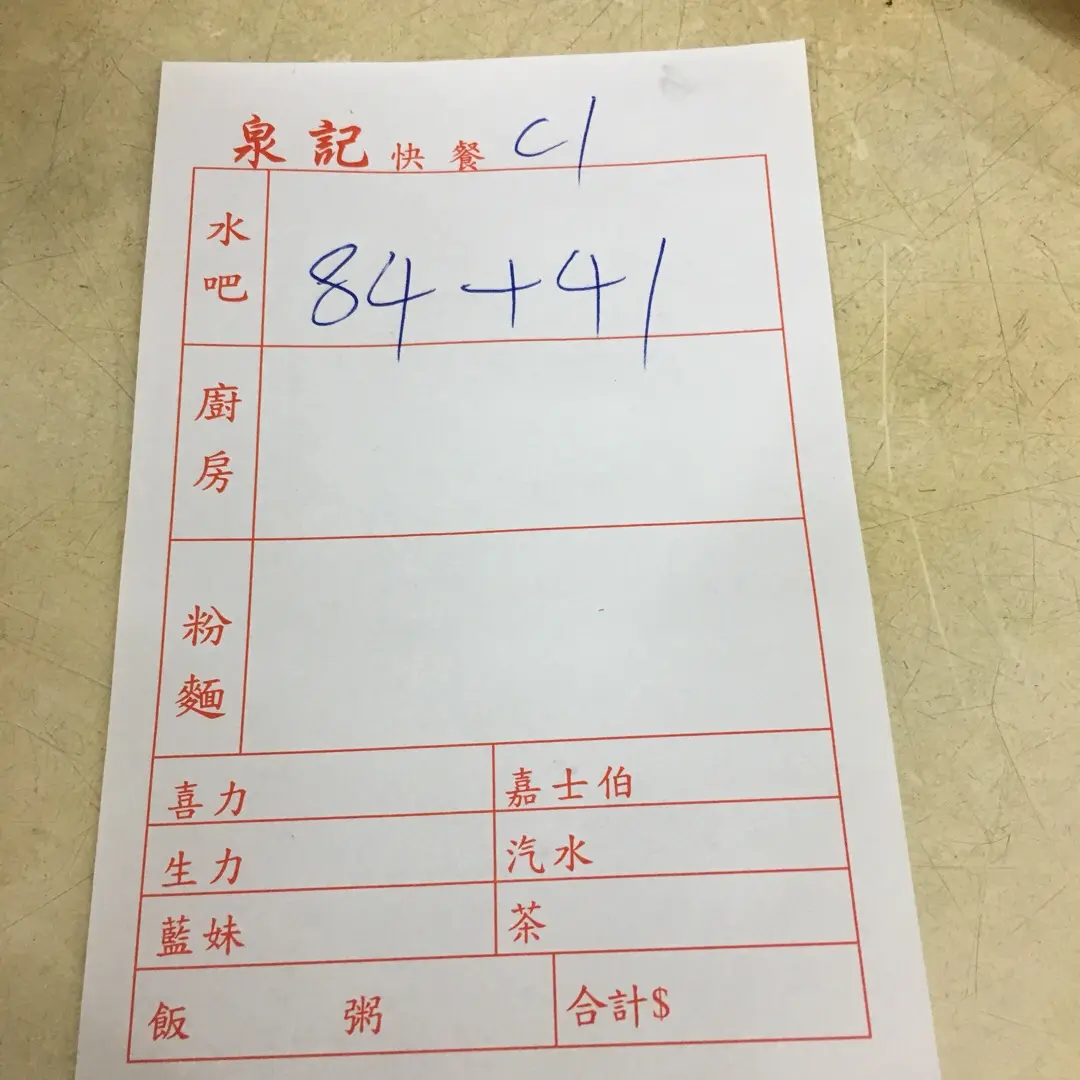 泉記快餐 C1
水吧 84+41
廚房
粉麵
喜力 嘉士伯
生力 汽水
藍妹 茶
飯 粥 合計$